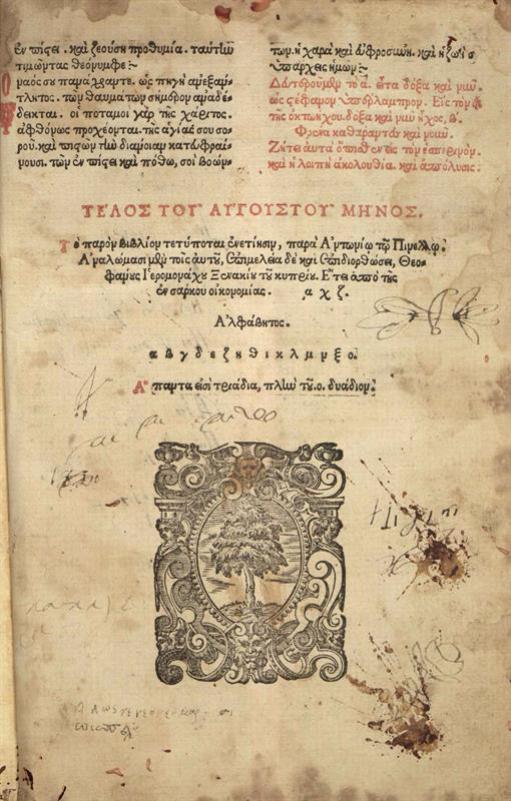 ἐν πίστει. καὶ ζεούσῃ προθυμία. ταύτην
τιμῶντας θεόνυμφε:~
Ο μαός σου πανάχραντε. ὡς πηγὴ ἀνεξάν-
τλητος. τῶν θαυμάτων σήμερον ἀναδέ-
δεικται. οἱ ποταμοὶ γὰρ τῆς χάριτος.
ἀφθόνως προχέονται. τῆς ἁγίας σου σο-
ροῦ. καὶ πιστῶν τὴν διάνοιαν κατευφραί-
νουσι. τῶν ἐν πίστει καὶ πόθῳ, σοὶ βοών-
των. ἡ χαρὰ καὶ εὐφροσύνη. καὶ ἡ ζωὴ σ
ὑπάρχεις ἡμῶν:~
Δευτεροῦμεν τὸ α. εἶτα δόξα καὶ νῦν.
ὡς στέφανον ὑπέρλαμπρον. Εἰς τὸν
τῆς ὀκτωήχου. δόξα καὶ νῦν ἦχος, β.
Φρένα καθάραντες καὶ νοῦν.
Ζήτει αὐτὰ ὄπισθεν εἰς τὸν ἑσπερινόν.
καὶ ἡ λοιπὴ ἀκολουθία. καὶ ἀπόλυσις.
ΤΕΛΟΣ ΤΟΥ͂ ΑΥΓΟΥΣΤΟΥ ΜΗΝΟΣ.
Τὸ παρὸν βιβλίον τετύπωται ἐνετίησιν, παρὰ Ἀντωνίῳ τῷ Πινέλλῳ.
Ἀναλώμασι μὲν τοῖς αὐτοῦ, ἐπιμελείᾳ δὲ καὶ ἐπιδιορθώσει, Θεο-
φάνους Ἱερομονάχου Ξενακίου τοῦ κυπρίου. Ἔτει ἀπὸ τῆς
ἐνσάρκου οἰκονομίας. α χ ζ.
Ἀλφάβητος.
α β γ δ ε ζ η θ ι κ λ μ ν ξ ο.
Ἅπαντά εἰσι τριάδια, πλὴν τοῦ. ο. δυάδιον.